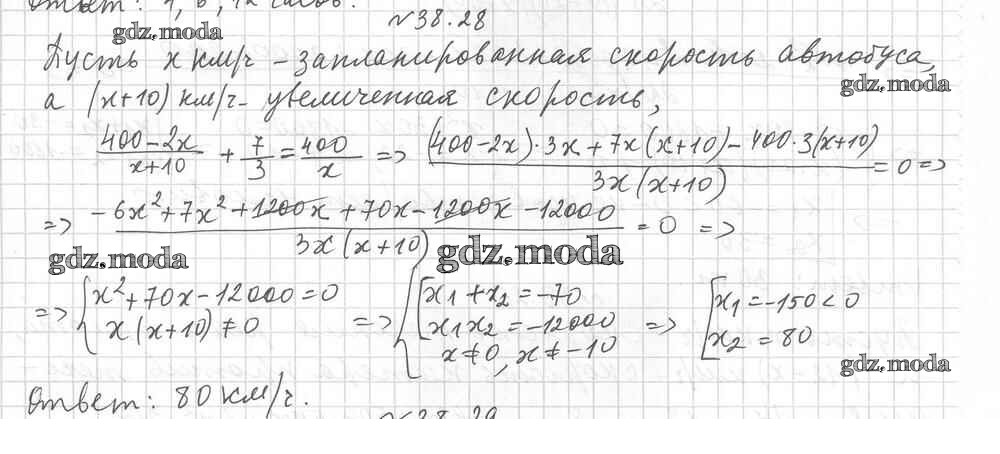 Ответ: 1, 6, 12 часов.
gdz.moda
№38.28
Пусть x км/ч – запланированная скорость автобуса,
gdz.moda
а (x+10) км/ч – увеличенная скорость,
(400-2x)/(x+10) + 7/3 = 400/x => ((400-2x)·3x+7x(x+10)-400·3(x+10))/(3x(x+10)) = 0 =>
=> (-6x²+7x²+1200x+70x-1200x-12000)/(3x(x+10)) = 0 =>
gdz.moda gdz.moda
=> { x²+70x-12000=0 => { [ x₁+x₂=-70 => [ x₁=-150<0
x(x+10)≠0 x₁x₂=-12000 x₂=80
x≠0, x≠-10
gdz.moda
Ответ: 80 км/ч.
№38.29